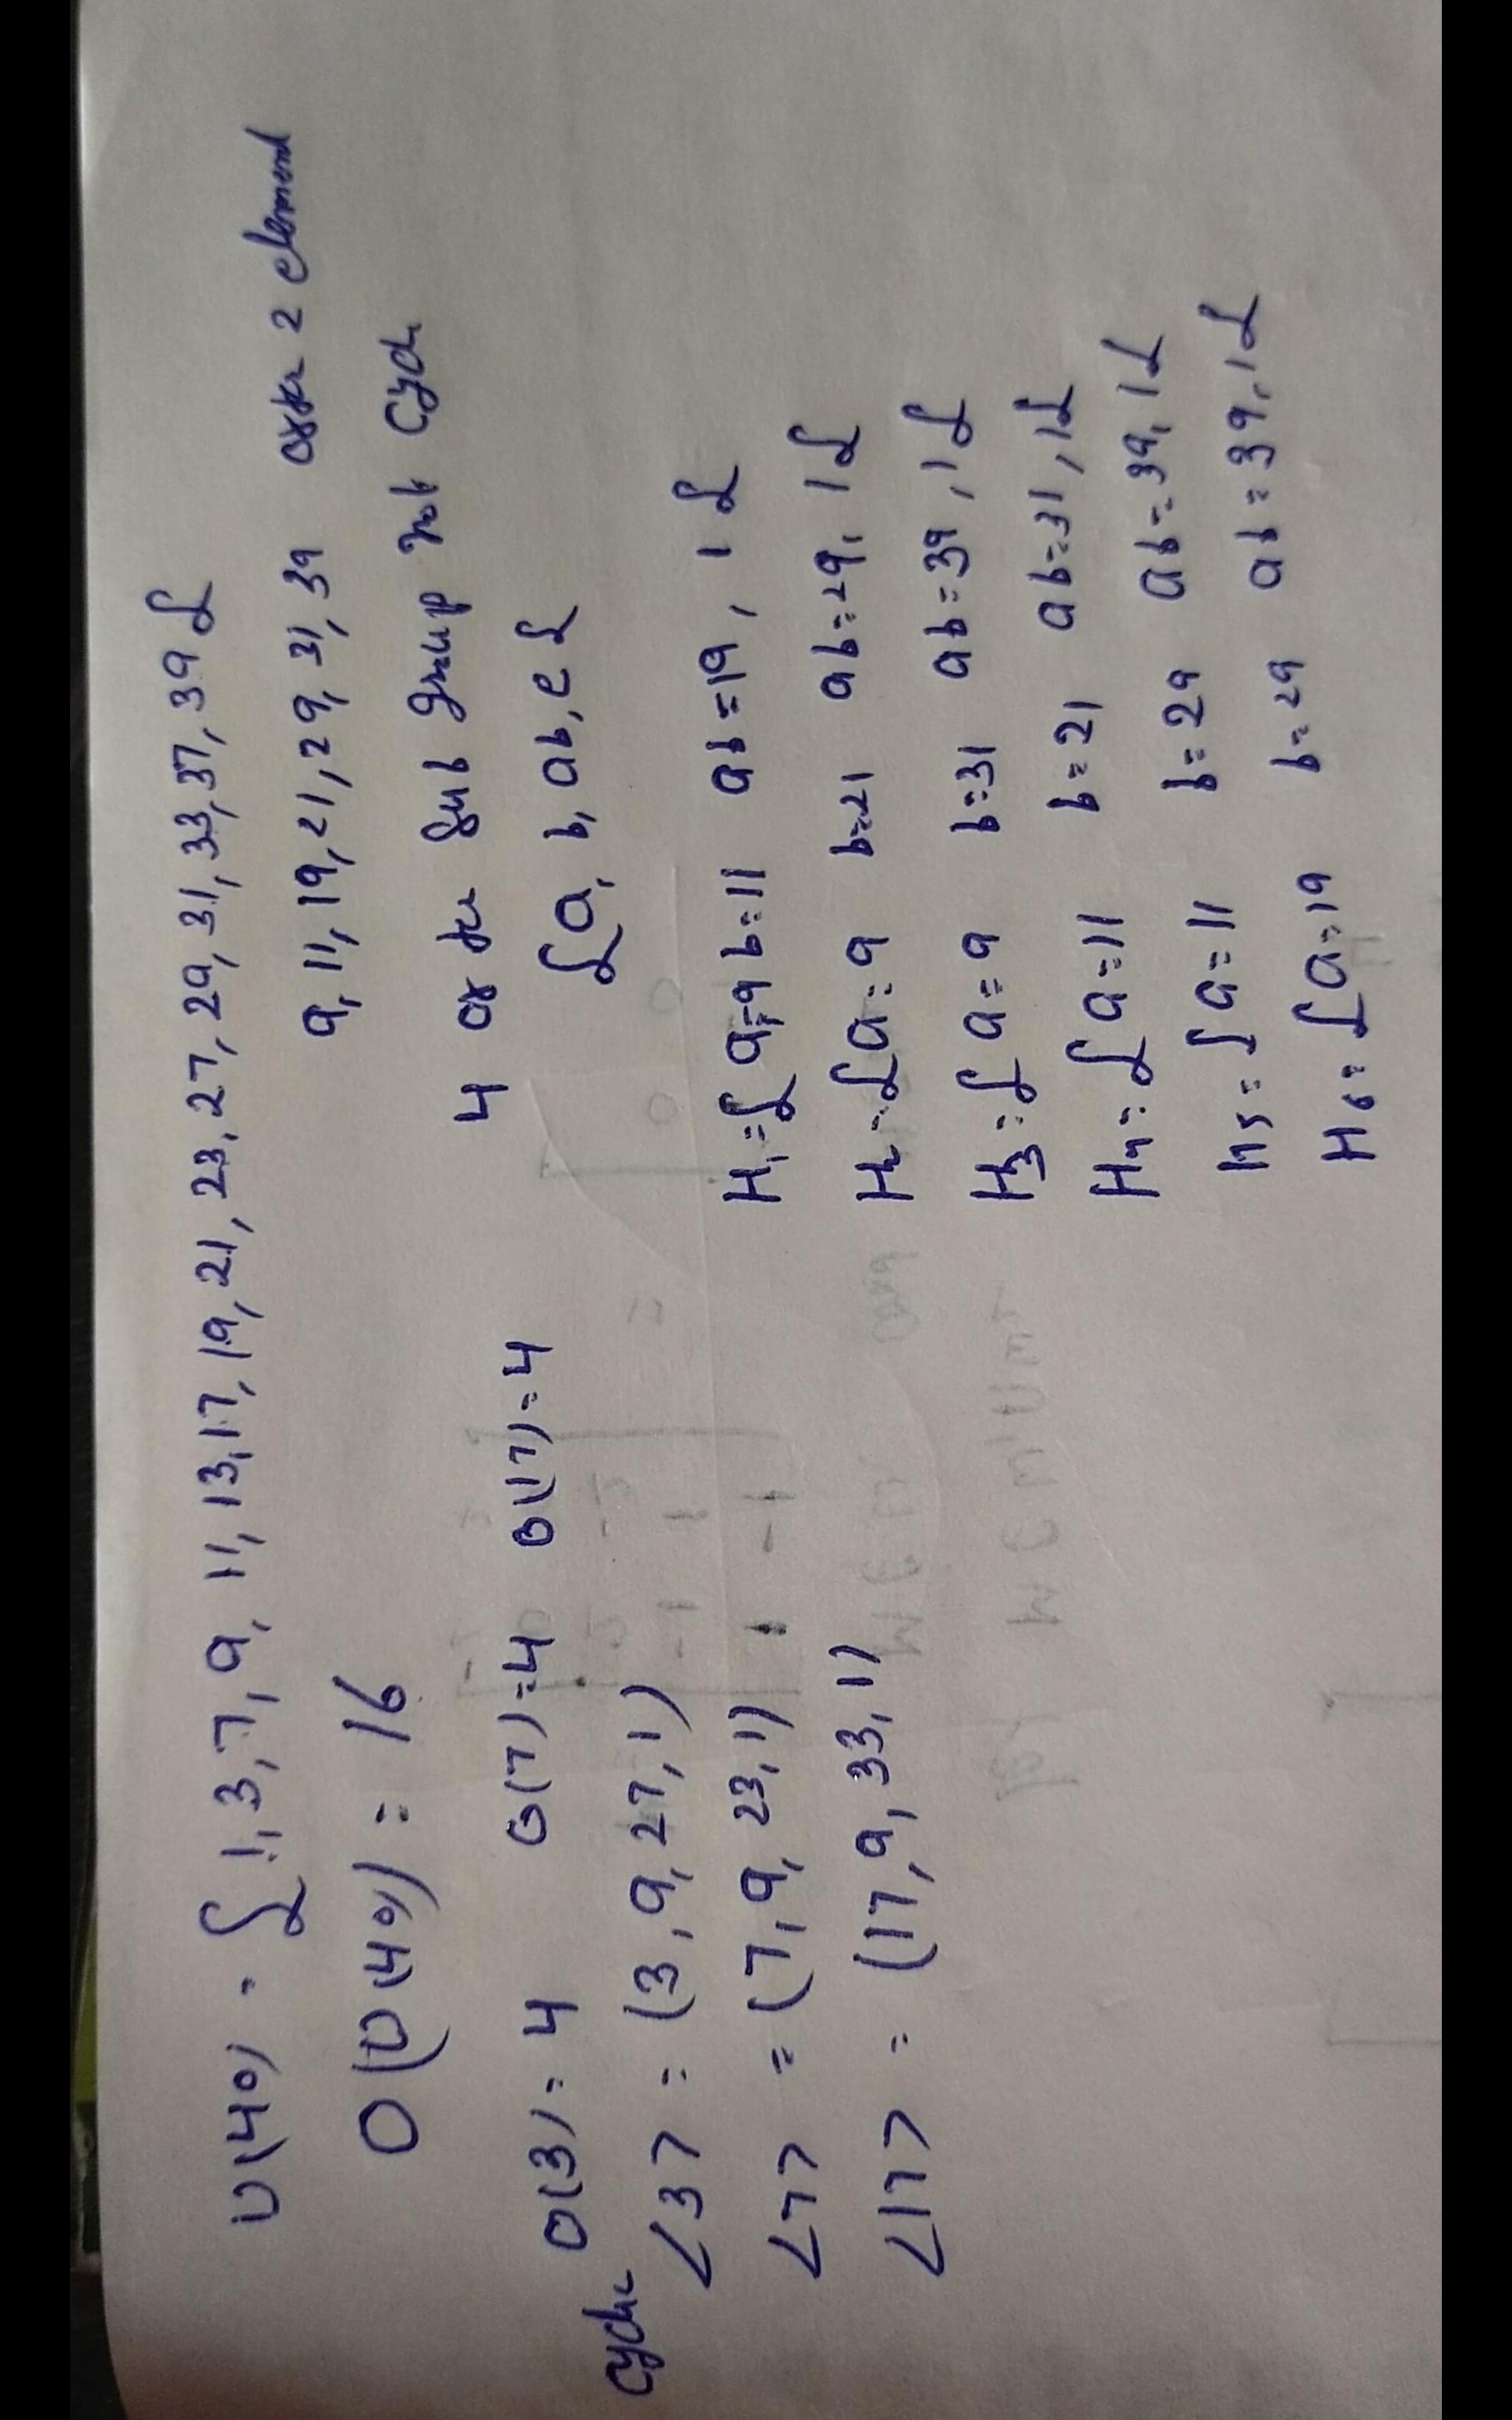 U(40) = { 1, 3, 7, 9, 11, 13, 17, 19, 21, 23, 27, 29, 31, 33, 37, 39 }
O(U(40)) = 16
9, 11, 19, 21, 29, 31, 39 order 2 element
4 order Sub group not cyclic
{ a, b, ab, e }
cyclic O(3) = 4 O(7) = 4 O(17) = 4
<3> = (3, 9, 27, 1)
<7> = (7, 9, 23, 1)
<17> = (17, 9, 33, 1)
H1 = { a = 9 b = 11 ab = 19, 1 }
H2 = { a = 9 b = 21 ab = 29, 1 }
H3 = { a = 9 b = 31 ab = 39, 1 }
H4 = { a = 11 b = 21 ab = 31, 1 }
H5 = { a = 11 b = 29 ab = 39, 1 }
H6 = { a = 19 b = 29 ab = 39, 1 }